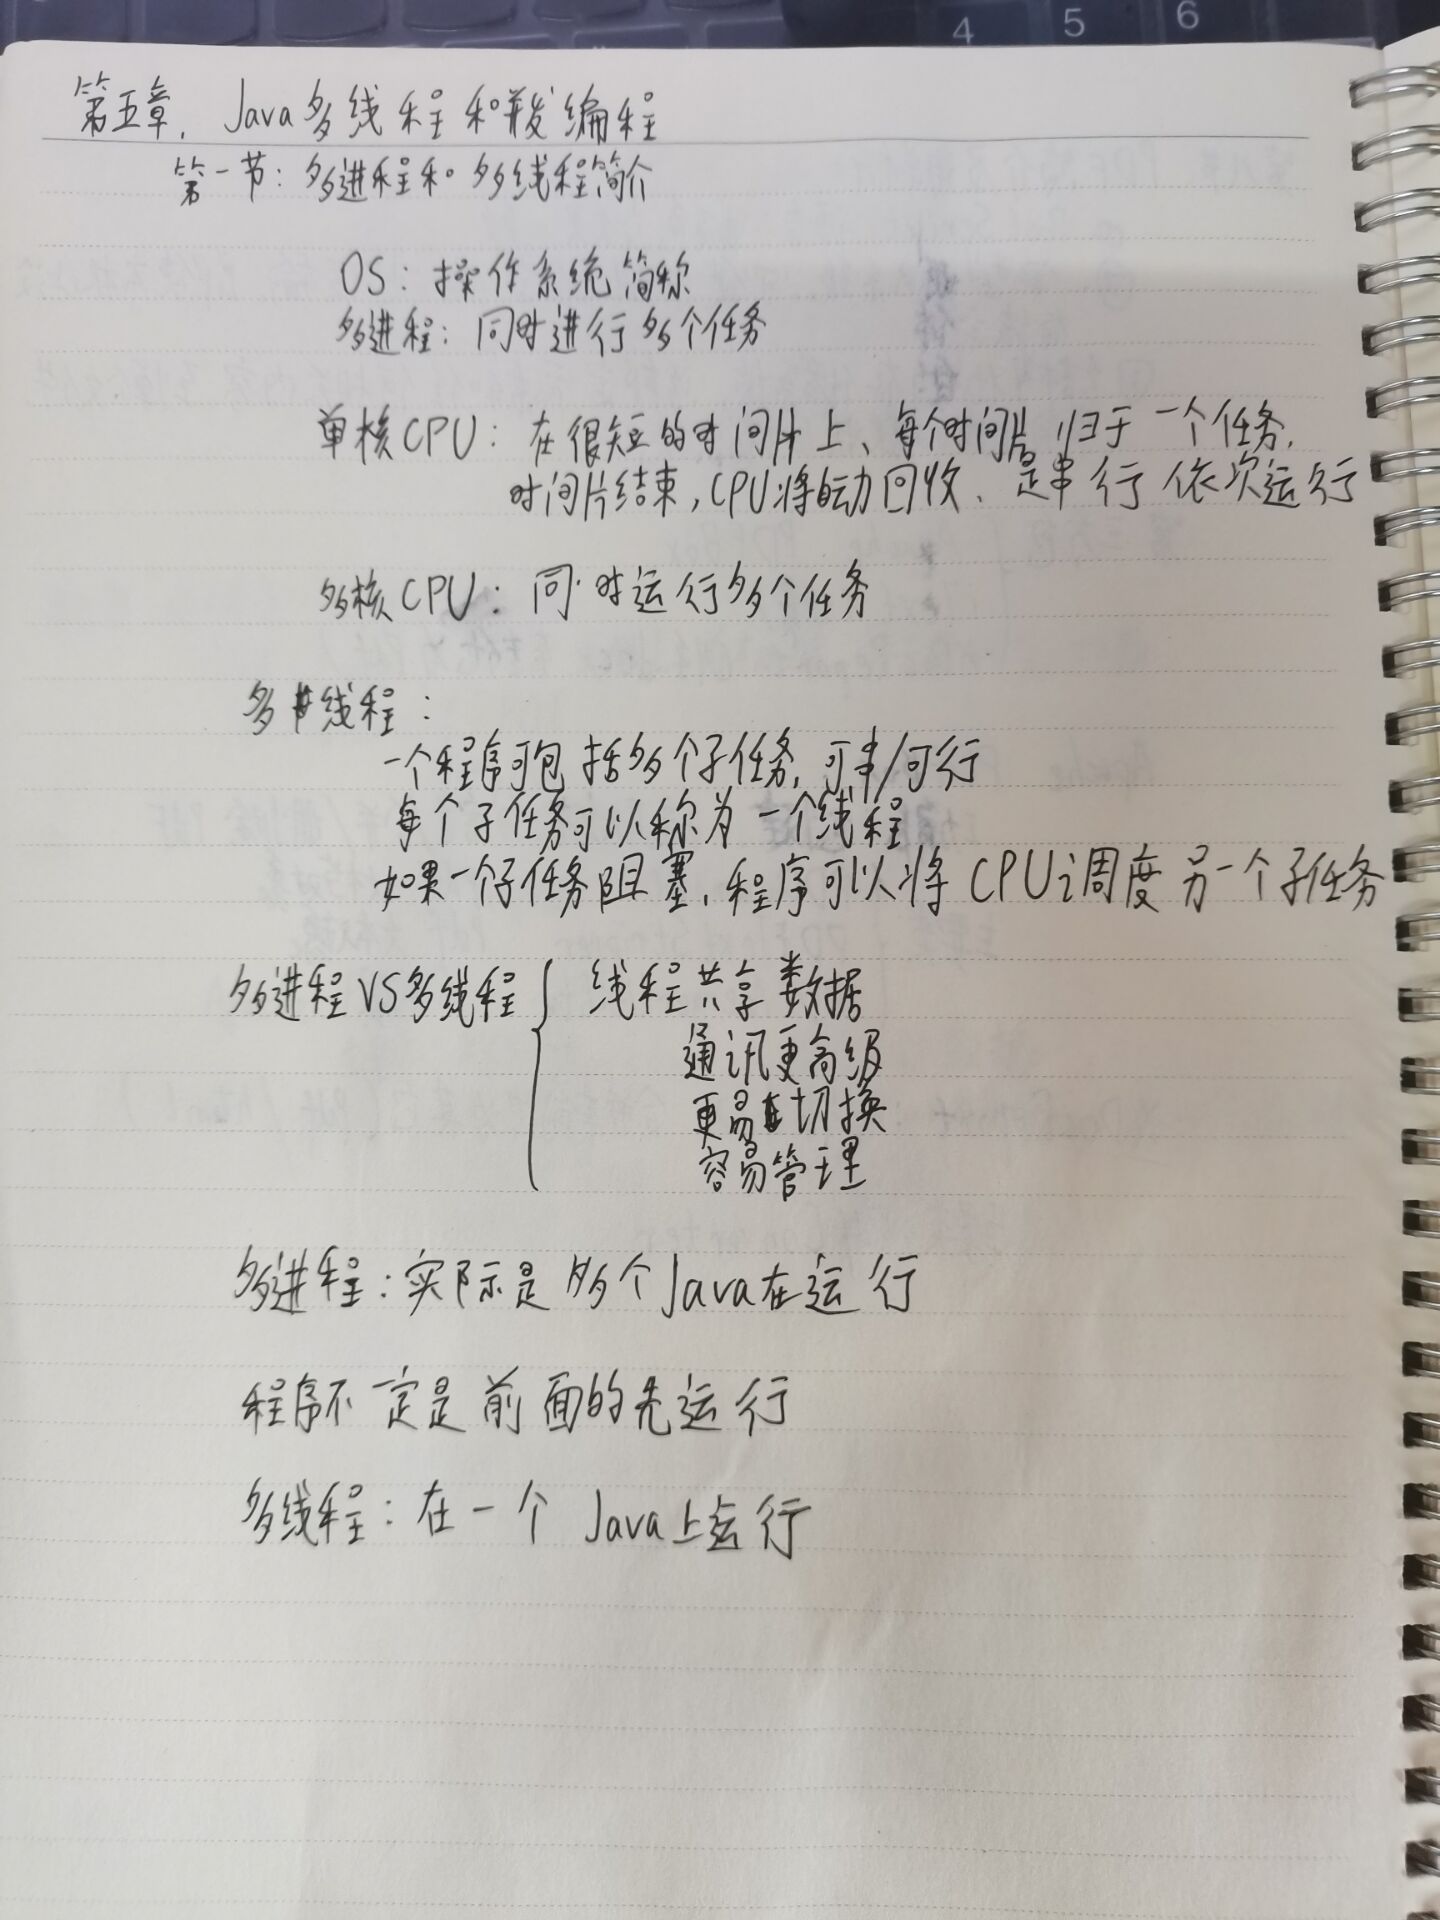 4 5 6
第五章, Java多线程和并发编程
第一节: 多进程和多线程简介
OS: 操作系统简称
多进程: 同时进行多个任务
单核CPU: 在很短的时间片上、每个时间片归于一个任务,
时间片结束,CPU将自动回收、是串行依次运行
多核CPU: 同时运行多个任务
多线程:
一个程序可包括多个子任务, 可串/可行
每个子任务可以称为一个线程
如果一个子任务阻塞,程序可以将CPU调度另一个子任务
多进程VS多线程{ 线程共享数据
通讯更高级
更易切换
容易管理
多进程: 实际是多个Java在运行
程序不一定是前面的先运行
多线程: 在一个 Java上运行